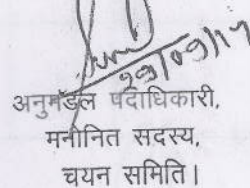 29/09/17
अनुमंडल पदाधिकारी,
मनोनित सदस्य,
चयन समिति।